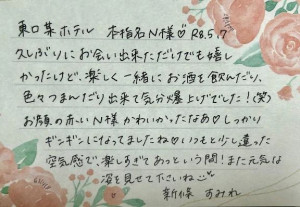 東口某ホテル 本指名N様♡R8.5.7
久しぶりにお会い出来ただけでも嬉し
かったけど、楽しく一緒にお酒を飲んだり、
色々つまんだり出来て気分爆上げでした!(笑)
お顔の赤いN様かわいかったなあ♡しっかり
ギンギンになってましたね♡いつもと少し違った
空気感で、楽しすぎてあっという間!また元気な
姿を見せて下さいね
新保 すみれ